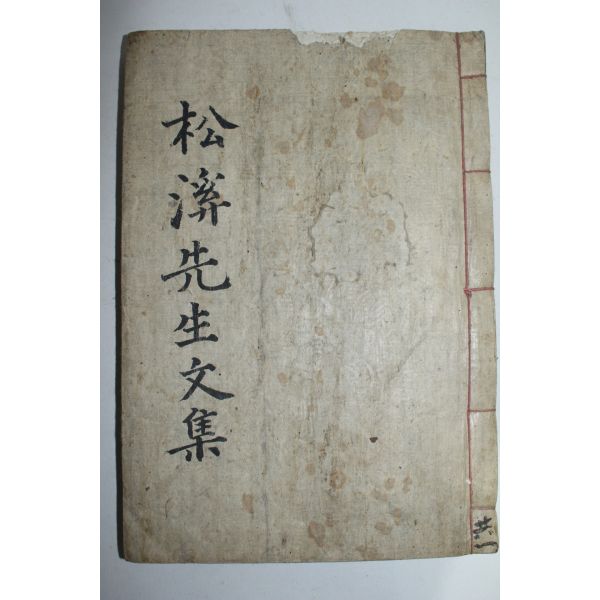 松溪先生文集
共一